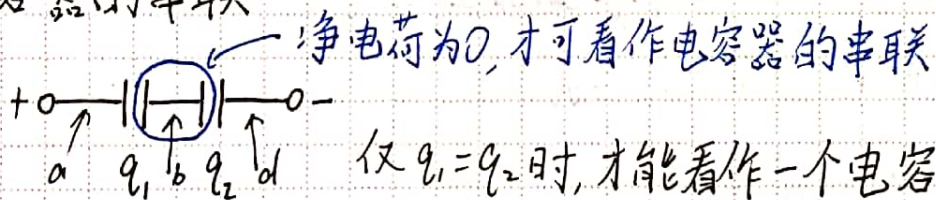 净电荷为0,才可看作电容器的串联
+ −
a q₁ b q₂ d
仅q₁=q₂时,才能看作一个电容